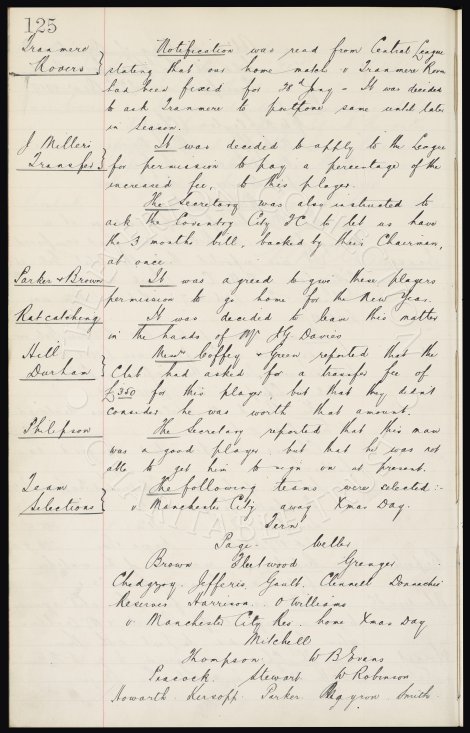 125
Tranmere
Rovers
Notification was read from Central League
stating that our home match v Tranmere Rovers
had been fixed for 28th Jany - It was decided
to ask Tranmere to postpone same until later
in season.
J Miller's
Transfer
It was decided to apply to the League
for permission to pay a percentage of the
increased fee, to this player.
The Secretary was also instructed to
ask the Coventry City FC to let us have
the 3 months bill, backed by their Chairman,
at once.
Parker & Brown
It was agreed to give these players
permission to go home for the New Year.
Ratcatching
It was decided to leave this matter
in the hands of Mr H.G. Davies
Hill
Durham
Messrs Coffey & Green reported that the
Club had asked for a transfer fee of
£350 for this player but that they didnt
consider he was worth that amount.
Philipson
The Secretary reported that this man
was a good player, but that he was not
able to get him to sign on at present.
Team
Selections
The following teams were selected:-
v. Manchester City away Xmas Day.
Fern
Page Weller
Brown Fleetwood Grenyer
Chedgzoy Jefferis Gault Clennell Donnachie
Reserves Harrison O Williams
v. Manchester City Res. home Xmas Day
Mitchell
Thompson W B Evans
Peacock Stewart W Robinson
Howarth Kirsopp Parker Smith